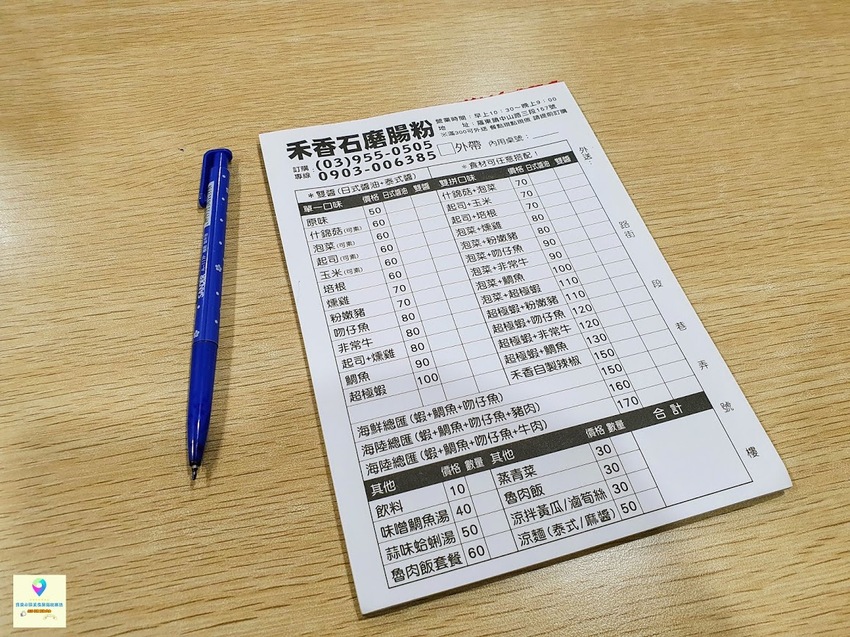 禾香石磨腸粉
訂購專線:(03)955-0505
0903-006385
營業時間：早上10:30~晚上9:00
地　　址：羅東鎮中山路三段157號
※滿300可外送 餐點現點現做 請提前訂購
□外帶 內用桌號：
＊食材可任意搭配！
＊雙醬(日式醬油+泰式醬)
單一口味 價格 日式醬油 雙醬
原味 50
什錦菇(可素) 60
泡菜(可素) 60
起司(可素) 60
玉米(可素) 60
培根 60
燻雞 70
粉嫩豬 70
吻仔魚 80
非常牛 80
起司+燻雞 80
鯛魚 90
超極蝦 100
雙拼口味 價格 日式醬油 雙醬
什錦菇+泡菜 70
起司+玉米 70
起司+培根 70
泡菜+燻雞 80
泡菜+粉嫩豬 80
泡菜+吻仔魚 90
泡菜+非常牛 90
泡菜+鯛魚 100
泡菜+超極蝦 110
超極蝦+粉嫩豬 110
超極蝦+吻仔魚 120
超極蝦+非常牛 120
超極蝦+鯛魚 130
禾香自製辣椒 150
海鮮總匯(蝦+鯛魚+吻仔魚) 150
海陸總匯(蝦+鯛魚+吻仔魚+豬肉) 160
海陸總匯(蝦+鯛魚+吻仔魚+牛肉) 170
其他 價格 數量
飲料 10
味噌鯛魚湯 40
蒜味蛤蜊湯 50
魯肉飯套餐 60
其他 價格 數量
蒸青菜 30
魯肉飯 30
涼拌黃瓜/滷筍絲 30
涼麵(泰式/麻醬) 50
合計
外送：
路街
段
巷
弄
號
樓